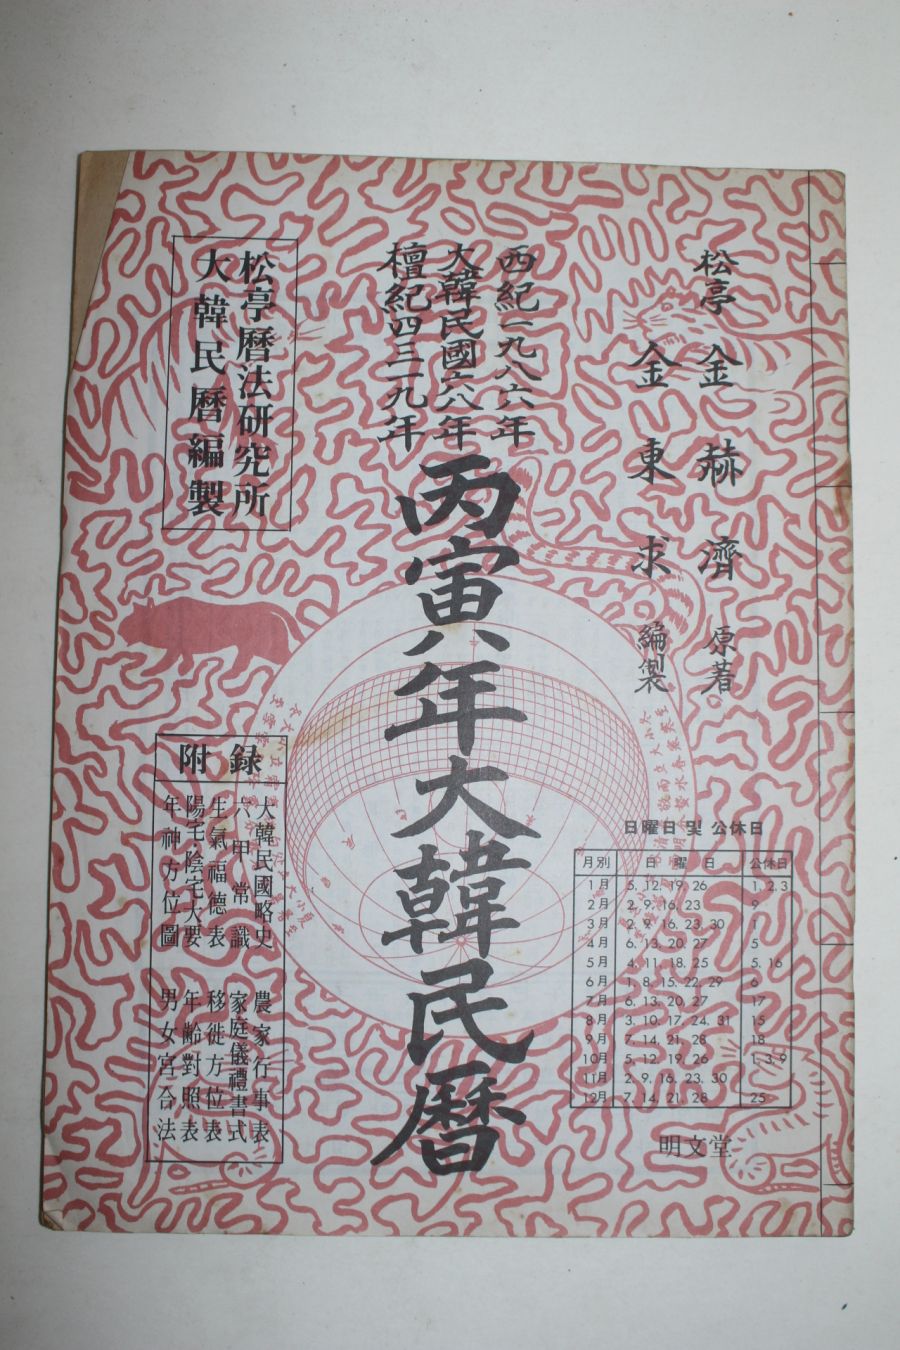 松亭 金赫濟 原著
金東求 編製
西紀一九八六年
大韓民國六八年
檀紀四三一九年
丙寅年大韓民曆
松亭曆法研究所
大韓民曆編製
附錄
大韓民國略史
六甲常識
生氣福德表
陽宅陰宅大要
年神方位圖
農家行事表
家庭儀禮書式
移徙方位表
年齡對照表
男女宮合法
日曜日 및 公休日
月別 日曜日 公休日
1月 5. 12. 19. 26 1. 2. 3
2月 2. 9. 16. 23 9
3月 2. 9. 16. 23. 30 1
4月 6. 13. 20. 27 5
5月 4. 11. 18. 25 5. 16
6月 1. 8. 15. 22. 29 6
7月 6. 13. 20. 27 17
8月 3. 10. 17. 24. 31 15
9月 7. 14. 21. 28 18
10月 5. 12. 19. 26 1. 3. 9
11月 2. 9. 16. 23. 30
12月 7. 14. 21. 28 25
明文堂